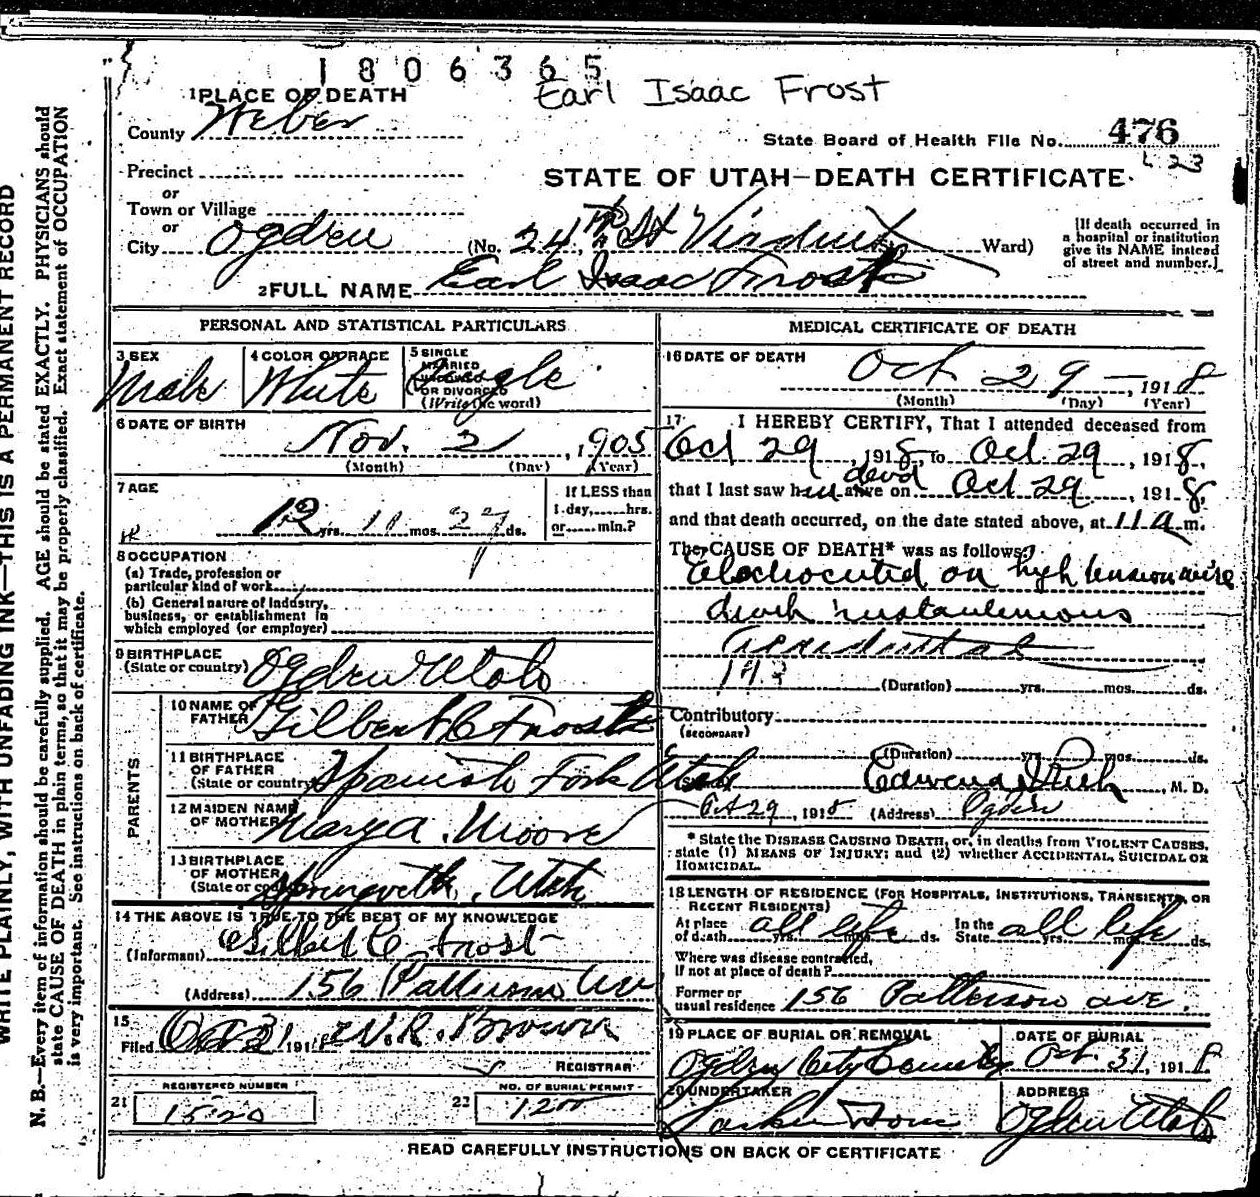 1806365
Earl Isaac Frost
1 PLACE OF DEATH
County Weber
State Board of Health File No. 476
23
Precinct
or
STATE OF UTAH—DEATH CERTIFICATE
Town or Village
or
City Ogden (No. 24th St Viaduct Ward)
[If death occurred in a hospital or institution give its NAME instead of street and number.]
2 FULL NAME Earl Isaac Frost
PERSONAL AND STATISTICAL PARTICULARS
3 SEX
Male
4 COLOR OR RACE
White
5 SINGLE
MARRIED
WIDOWED
OR DIVORCED
(Write the word)
Single
6 DATE OF BIRTH
Nov. 2, 1905
(Month) (Day) (Year)
7 AGE
12 yrs. 11 mos. 27 ds.
If LESS than
1 day,......hrs.
or......min.?
8 OCCUPATION
(a) Trade, profession or
particular kind of work
(b) General nature of Industry,
business, or establishment in
which employed (or employer)
9 BIRTHPLACE
(State or country) Ogden Utah
PARENTS
10 NAME OF
FATHER Gilbert C Frost
11 BIRTHPLACE
OF FATHER
(State or country) Spanish Fork Utah
12 MAIDEN NAME
OF MOTHER Mary A. Moore
13 BIRTHPLACE
OF MOTHER
(State or country) Springville, Utah
14 THE ABOVE IS TRUE TO THE BEST OF MY KNOWLEDGE
(Informant) Gilbert C Frost
(Address) 156 Patterson Ave
15
Filed Oct 31 1918 W. R. Brown
REGISTRAR
REGISTERED NUMBER
21 1520
NO. OF BURIAL PERMIT
22 1200
MEDICAL CERTIFICATE OF DEATH
16 DATE OF DEATH
Oct 29 — 1918
(Month) (Day) (Year)
17 I HEREBY CERTIFY, That I attended deceased from
Oct 29, 1918, to Oct. 29, 1918,
dead
that I last saw him alive on Oct 29, 1918,
and that death occurred, on the date stated above, at 11 a m.
The CAUSE OF DEATH* was as follows:
Electrocuted on high tension wire
death instantaneous
Accidental
(Duration) yrs. mos. ds.
Contributory
(SECONDARY)
(Duration) yrs. mos. ds.
(Signed) Edward Rich, M. D.
Oct 29, 1918 (Address) Ogden
* State the DISEASE CAUSING DEATH, or, in deaths from VIOLENT CAUSES,
state (1) MEANS OF INJURY; and (2) whether ACCIDENTAL, SUICIDAL OR
HOMICIDAL.
18 LENGTH OF RESIDENCE (FOR HOSPITALS, INSTITUTIONS, TRANSIENTS, OR
RECENT RESIDENTS)
At place
of death all life yrs. mos. ds.
In the
State all life yrs. mos. ds.
Where was disease contracted,
If not at place of death?
Former or
usual residence 156 Patterson ave.
19 PLACE OF BURIAL OR REMOVAL
Ogden City Cemetery
DATE OF BURIAL
Oct. 31, 1918
20 UNDERTAKER
Larkin
ADDRESS
Ogden Utah
READ CAREFULLY INSTRUCTIONS ON BACK OF CERTIFICATE
WRITE PLAINLY, WITH UNFADING INK—THIS IS A PERMANENT RECORD
N. B.—Every item of information should be carefully supplied. AGE should be stated EXACTLY. PHYSICIANS should
state CAUSE OF DEATH in plain terms, so that it may be properly classified. Exact statement of OCCUPATION
is very important. See instructions on back of certificate.